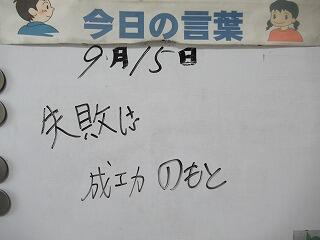 今日の言葉
9月15日
失敗は
成功のもと